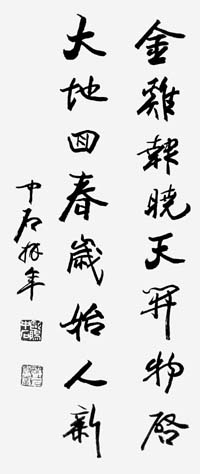 金雞韓曉天開物啓
大地回春歲始人新
中石拜年